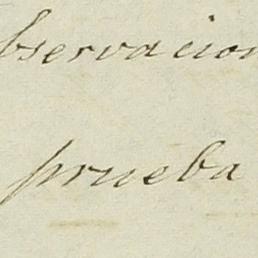 bservacion
prueba